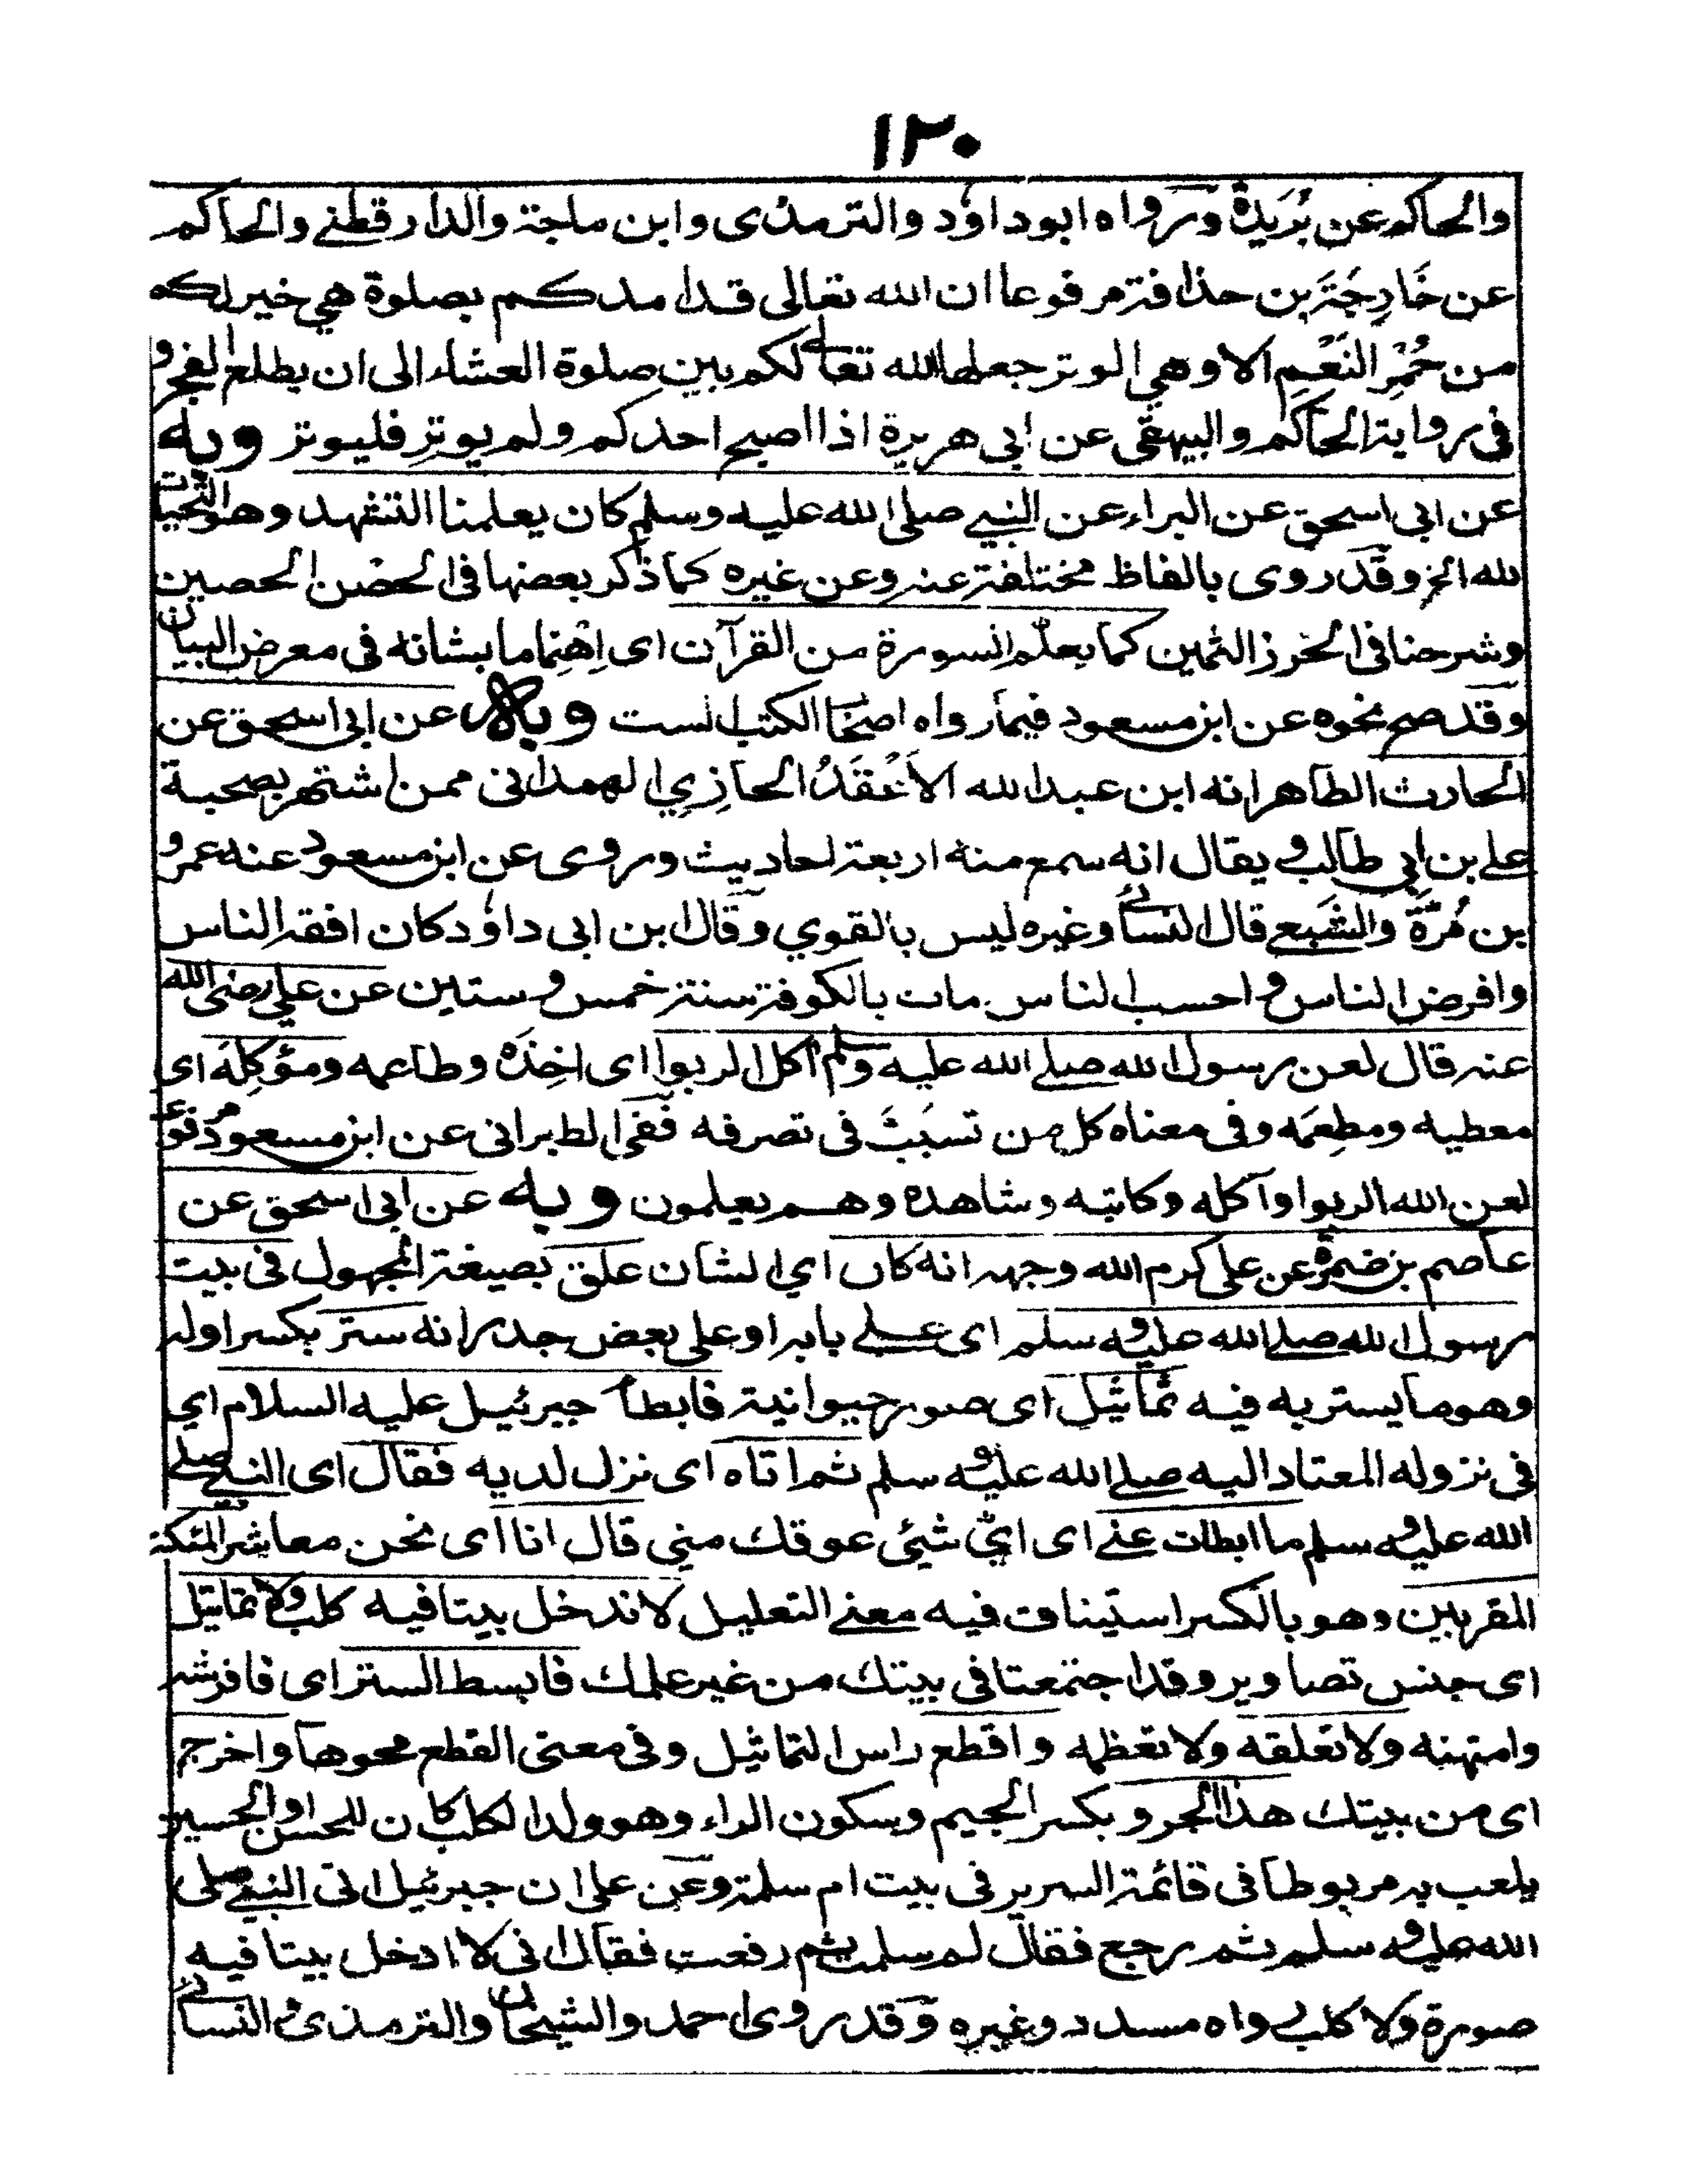 ١٢٠
والحاكم عن بُرَيْدَةَ ورواه ابو داود والترمذى وابن ماجة والدارقطنے والحاكم
عن خَارِجَةَ بن حذافة مرفوعا ان الله تعالى قد امدكم بصلوة هي خير لكم
من حُمْرِ النَّعَمِ الا وهي الوتر جعلها الله تعالے لكم بين صلوة العشاء الى ان يطلع الفجر و
فى رواية الحاكم والبيهقى عن ابي هريرة اذا اصبح احدكم ولم يوتِر فليوتر وبه
عن ابى اسحق عن البراء عن النبے صلى الله عليه وسلم كان يعلمنا التشهد وهو التحيات
لله الخ وقد روى بالفاظ مختلفة عنه وعن غيره كما ذكر بعضها فى الحصن الحصين
وشرحنا فى الحرز الثمين كما يعلم السورة من القرآن اى اِهْتِماما بشانه فى معرض البيان
وقد صح نحوه عن ابن مسعود فيما رواه اصحاب الكتب الست وبه عن ابى اسحق عن
الحارث الظاهر انه ابن عبد الله الاَعْقَدُ الحازِي الهمدانى ممن اشتهر بصحبة
علے بن ابي طالب و يقال انه سمع منه اربعة احاديث وروى عن ابن مسعود عنه عمرو
بن مُرَّةَ والشَّعبے قال النسائے وغيره ليس بالقوي وقال ابن ابى داود كان افقه الناس
وافرض الناس و احسب الناس مات بالكوفة سنة خمس و ستين عن علي رضى الله
عنه قال لعن رسول الله صلے الله عليه وسلم آكل الربوا اى اخِذَه وطاعمه ومؤكِلَه اى
معطيه ومطعِمَه وفى معناه كل من تسبَّبَ فى تصرفه ففى الطبرانى عن ابن مسعود مرفوعا
لعن الله الربوا وآكله وكاتبه وشاهده وهم يعلمون وبه عن ابى اسحق عن
عاصم بن ضمرة عن على كرم الله وجهه انه كان اي الشان علق بصيغة المجهول فى بيت
رسول الله صلے الله عليه و سلم اى علے بابه او على بعض جدرانه ستر بكسر اوله
وهو ما يستر به فيه تماثيل اى صور حيوانية فابطأ جبرئيل عليه السلام اي
فى نزوله المعتاد اليه صلے الله عليه و سلم ثم اتاه اى نزل لديه فقال اى النبے صلے
الله عليه و سلم ما ابطات عنے اى ايّ شيئى عوقك منى قال انا اى نحن معاشر الملئكة
المقربين وهو بالكسر استيناف فيه معنے التعليل لا ندخل بيتا فيه كلب ولا تماثيل
اى جنس تصاوير وقد اجتمعتا فى بيتك من غير علمك فابسط الستر اى فافرشه
وامتهنه ولا تعلقه ولا تعظمه واقطع راس التماثيل وفى معنى القطع محوها واخرج
اى من بيتك هذا الجرو بكسر الجيم وسكون الراء وهو ولد الكلب كان للحسن او الحسين
يلعب به مربوطا فى قائمة السرير فى بيت ام سلمة وعن على ان جبرئيل اتى النبے صلى
الله عليه و سلم ثم رجع فقال لم سلمت ثم رفعت فقال انى لا ادخل بيتا فيه
صورة ولا كلب رواه مسدد وغيره وقد روى احمد والشيخان والترمذى والنسائے